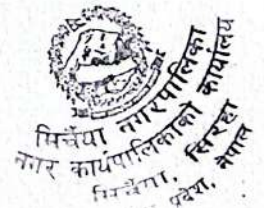 मिर्चैया नगरपालिका
नगर कार्यपालिकाको कार्यालय
मिर्चैया, सिरहा
प्रदेश, नेपाल